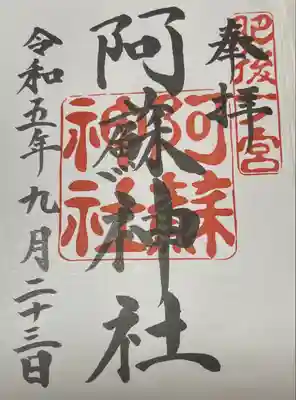 肥後一宮
奉拝
阿蘇神社
阿蘇
神社
令和五年九月二十三日